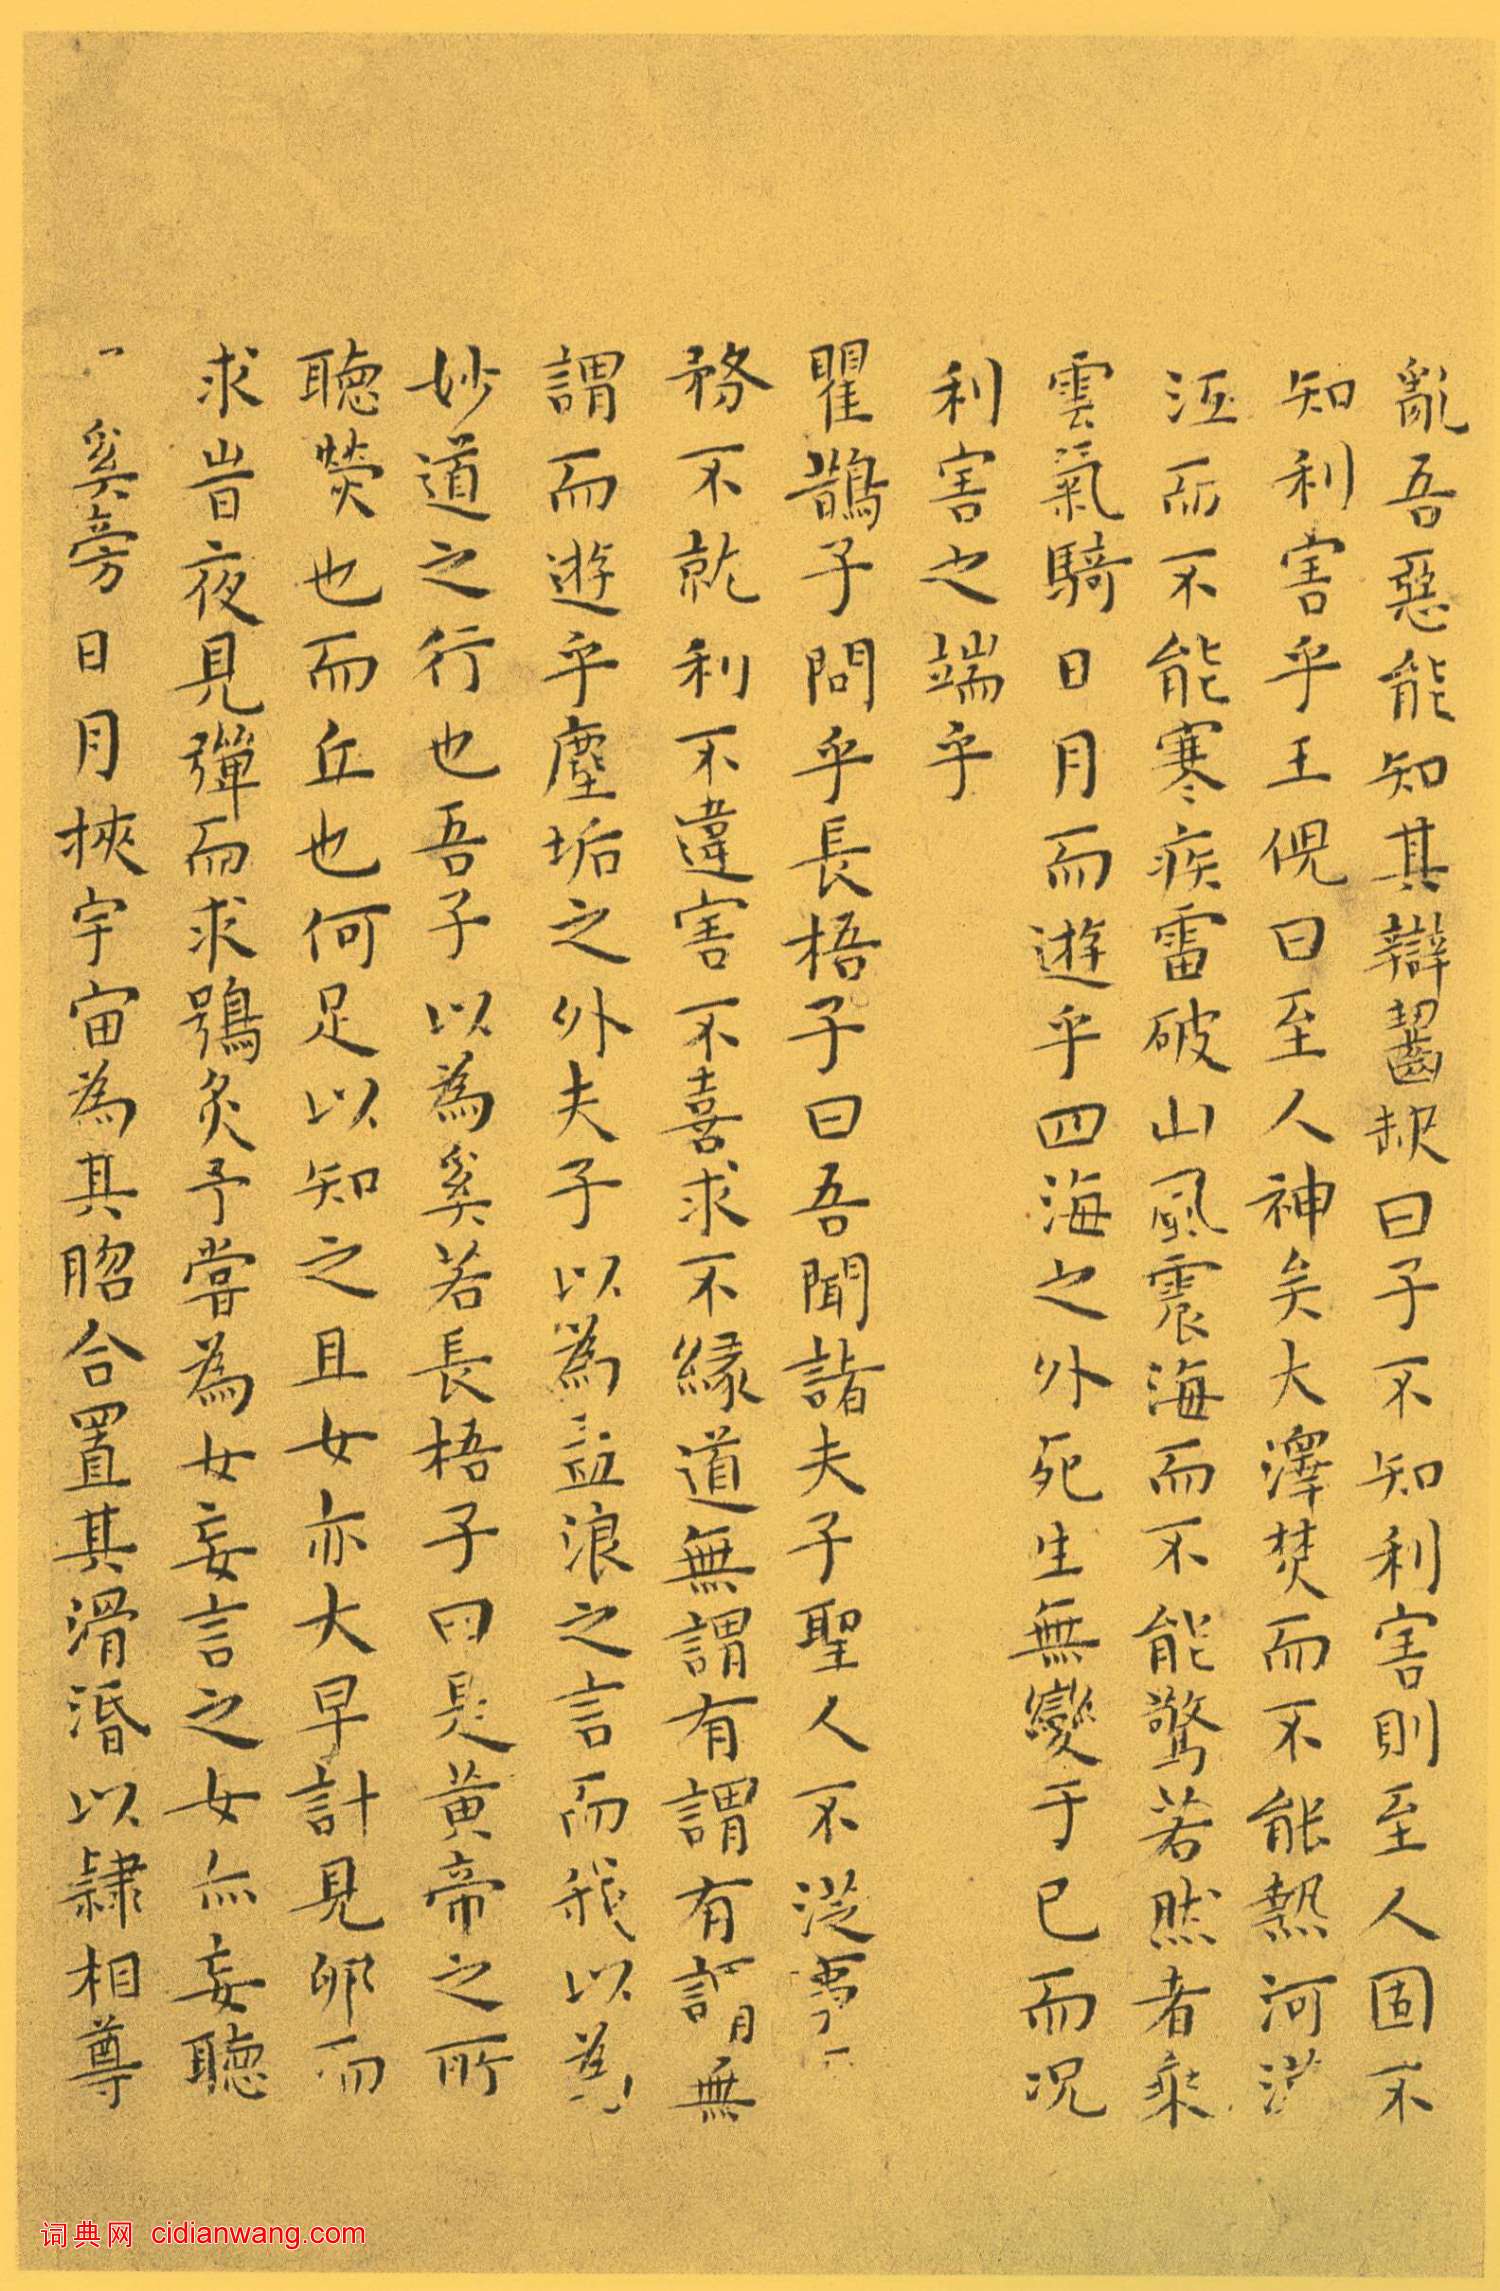 亂吾惡能知其辯齧缺曰子不知利害則至人固不
知利害乎王倪曰至人神矣大澤焚而不能熱河漢
沍而不能寒疾雷破山風震海而不能驚若然者乘
雲氣騎日月而遊乎四海之外死生無變于己而況
利害之端乎
瞿鵲子問乎長梧子曰吾聞諸夫子聖人不從事
務不就利不違害不喜求不緣道無謂有謂有謂無
謂而遊乎塵垢之外夫子以為孟浪之言而我以為
妙道之行也吾子以為奚若長梧子曰是黃帝之所
聽熒也而丘也何足以知之且女亦大早計見卵而
求旹夜見彈而求鴞炙予嘗為女妄言之女亦妄聽
奚旁日月挾宇宙為其䐇合置其滑涽以隸相尊
词典网 cidianwang.com